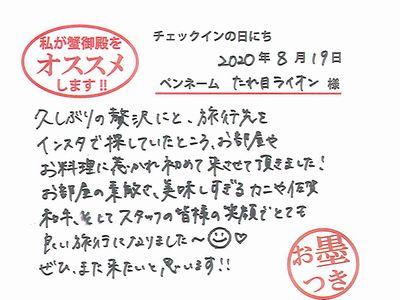 私が蟹御殿を
オススメ
します!!
チェックインの日にち
2020年8月19日
ペンネーム たれ目ライオン 様
久しぶりの贅沢にと、旅行先を
インスタで探していたところ、お部屋や
お料理に惹かれ初めて来させて頂きました!
お部屋の素敵さ、美味しすぎるカニや佐賀
和牛、そしてスタッフの皆様の笑顔でとても
良い旅行になりました〜☺♡
ぜひ、また来たいと思います!!
お墨
つき